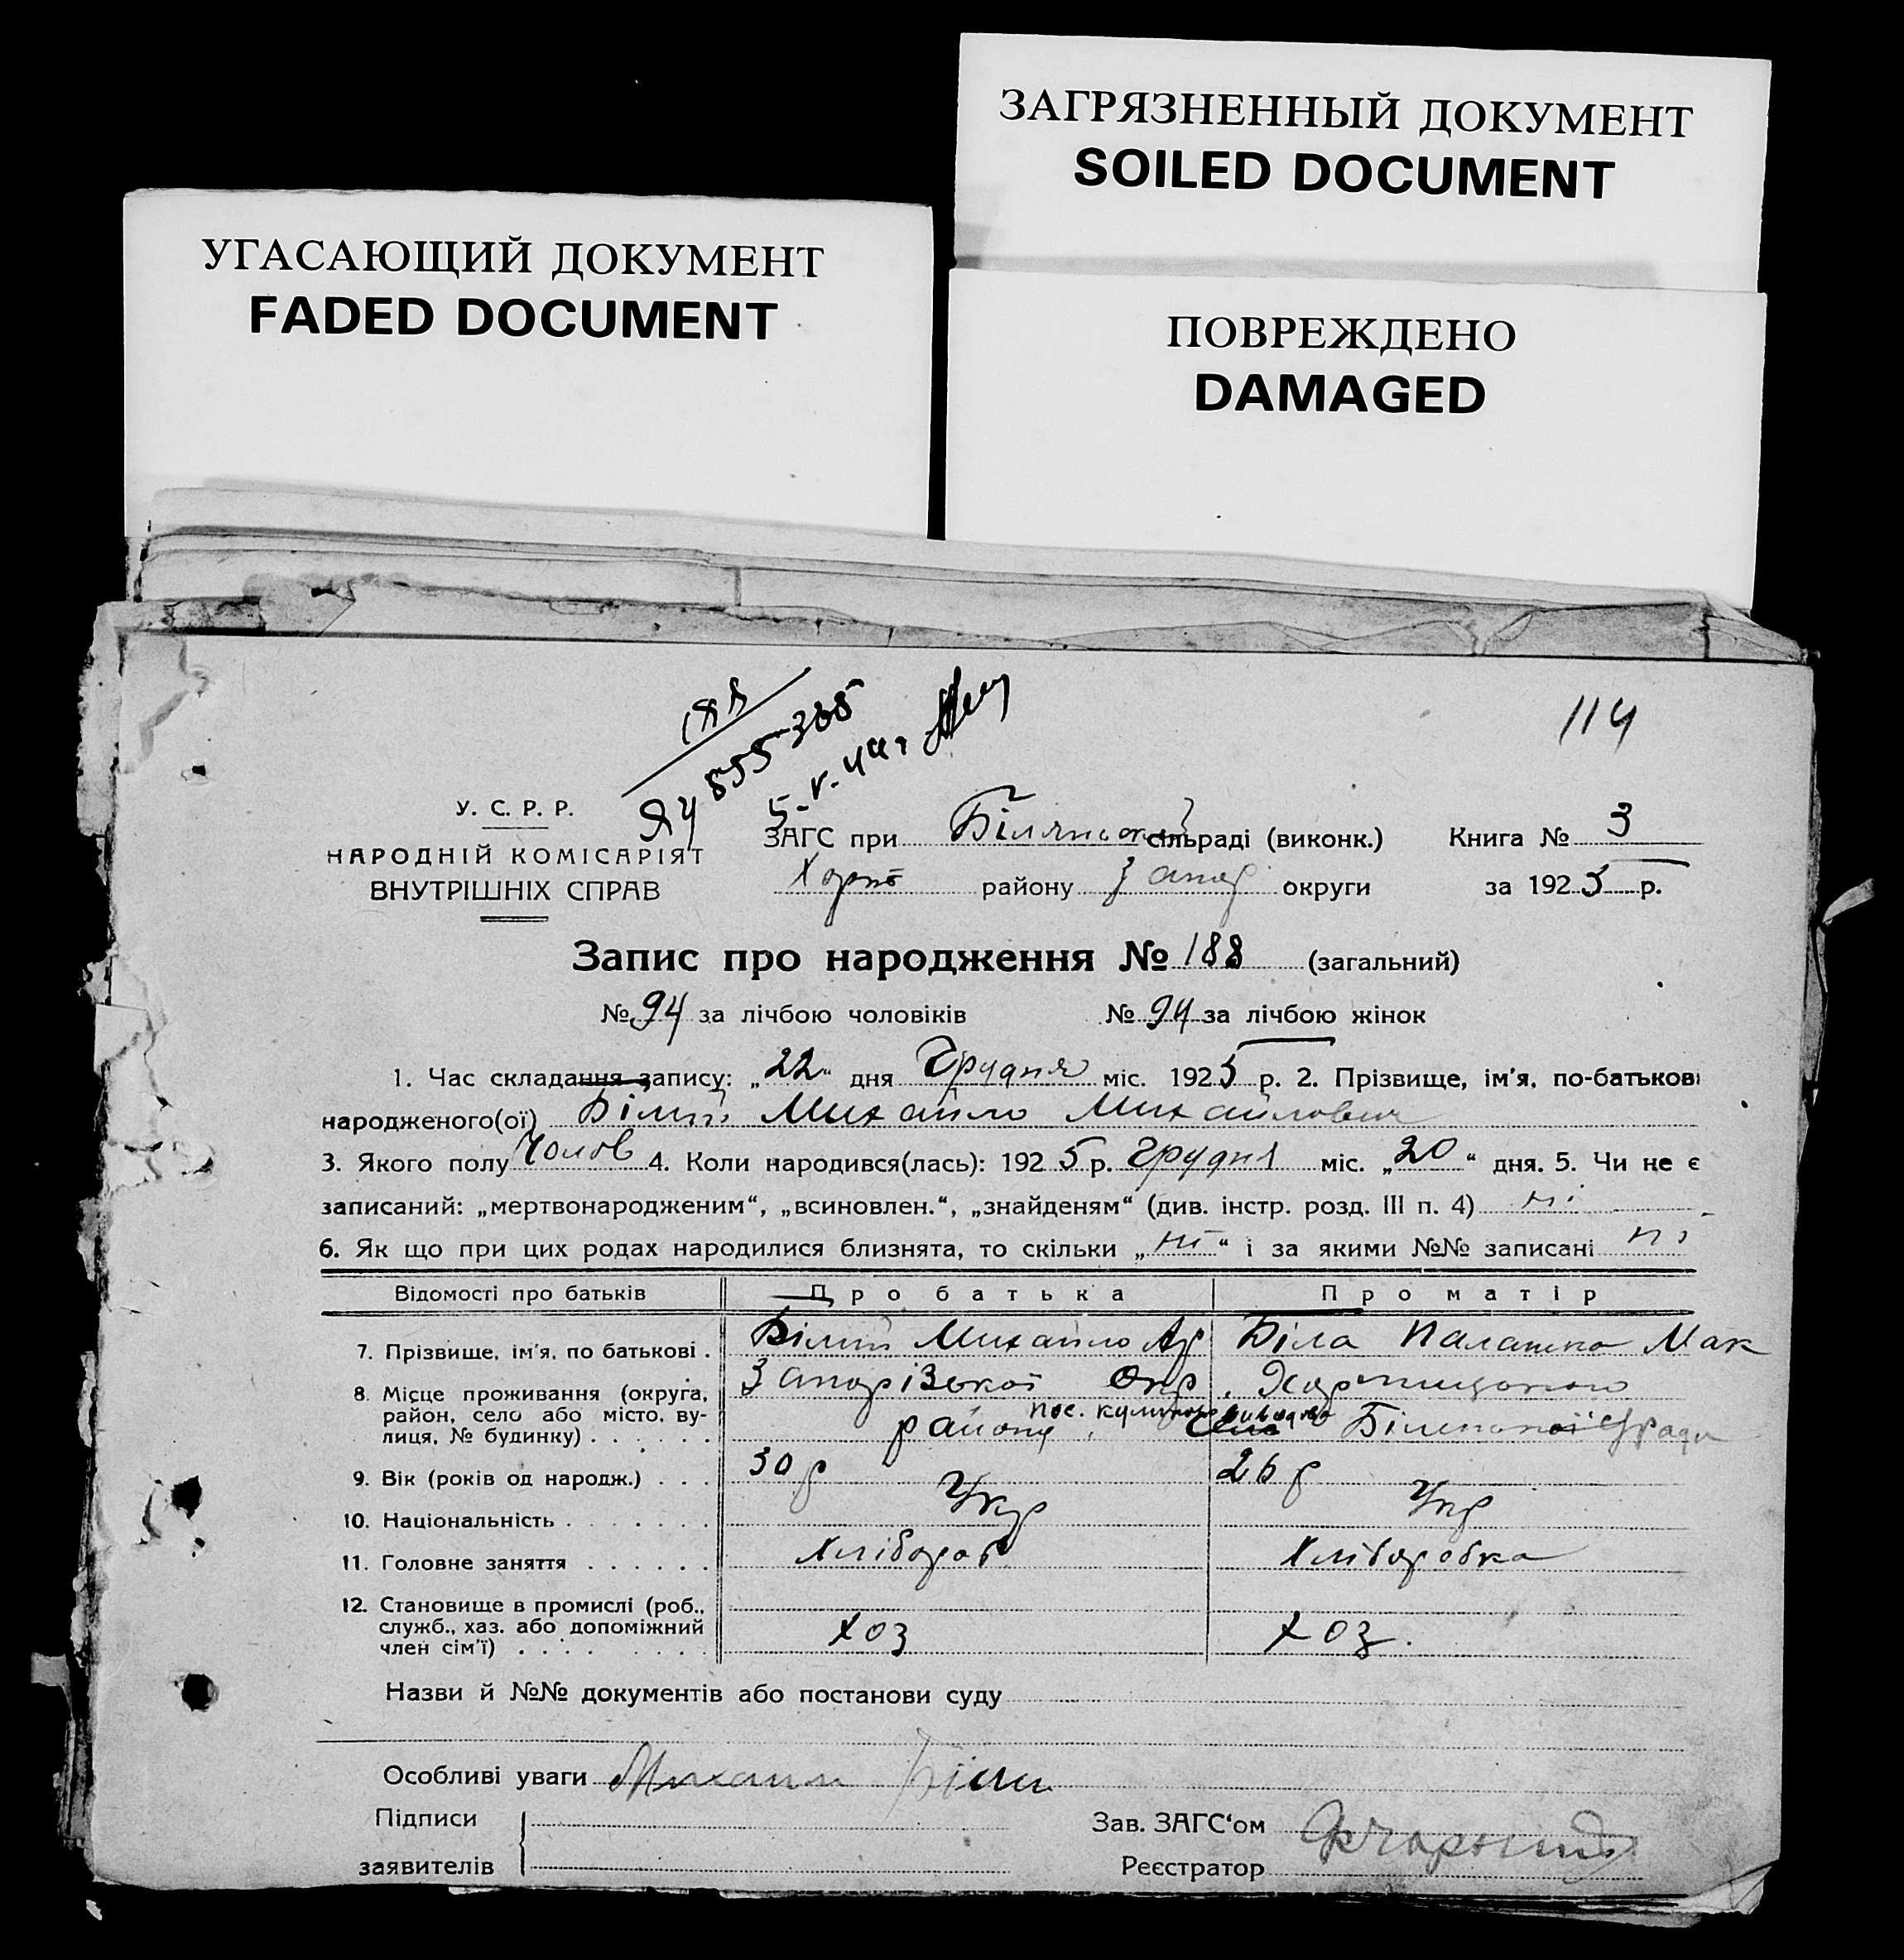 ЗАГРЯЗНЕННЫЙ ДОКУМЕНТ
SOILED DOCUMENT
УГАСАЮЩИЙ ДОКУМЕНТ
FADED DOCUMENT
ПОВРЕЖДЕНО
DAMAGED
114
У. С. Р. Р.
НАРОДНІЙ КОМІСАРІЯТ
ВНУТРІШНІХ СПРАВ
ЗАГС при сільраді (виконк.) Книга № 3
району Запор округи за 1925 р.
Запис про народження № 188 (загальний)
№ 94 за лічбою чоловіків № 94 за лічбою жінок
1. Час складання запису: „22“ дня Грудня міс. 1925 р. 2. Прізвище, ім'я, по-батькові
народженого(ої) Білий Михайло Михайлович
3. Якого полу Чолов 4. Коли народився(лась): 1925 р. Грудня міс. „20“ дня. 5. Чи не є
записаний: „мертвонародженим“, „всиновлен.“, „знайденям“ (див. інстр. розд. III п. 4) ні
6. Як що при цих родах народилися близнята, то скільки „ні“ і за якими №№ записані ні
Відомості про батьків Про батька Про матір
7. Прізвище, ім'я, по батькові . Білий Михайло Ар Біла Палашка Мак
8. Місце проживання (округа, район, село або місто, вулиця, № будинку) . . . . . . Запорізької Окр.
району,
9. Вік (років од народж.) . . . 30 р 26 р
10. Національність . . . . . . . Укр Укр
11. Головне заняття . . . . . . Хлібороб Хліборобка
12. Становище в промислі (роб., служб., хаз. або допоміжний член сім'ї) . . . . . . . . хоз хоз.
Назви й №№ документів або постанови суду
Особливі уваги Михайло Білий
Підписи
заявителів
Зав. ЗАГС‘ом
Реєстратор